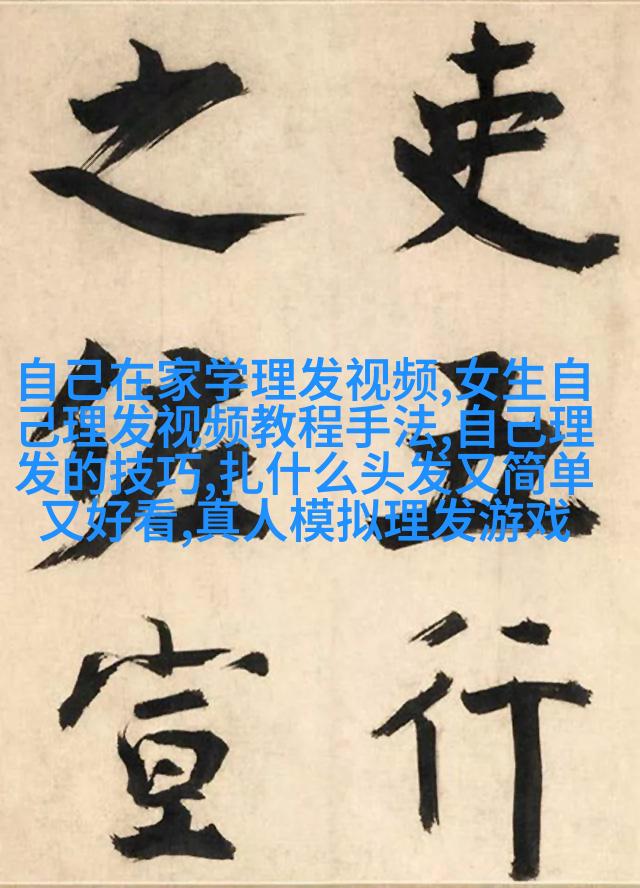 吏
行
之
宣
自己在家学理发视频,女生自
己理发视频教程手法,自己理
发的技巧,扎什么头发又简单
又好看,真人模拟理发游戏